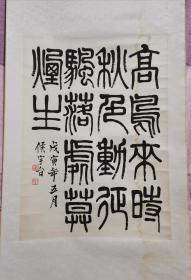 高鳥來時
秋色動征
颿落處莫
煙生
戊寅年五月
侯